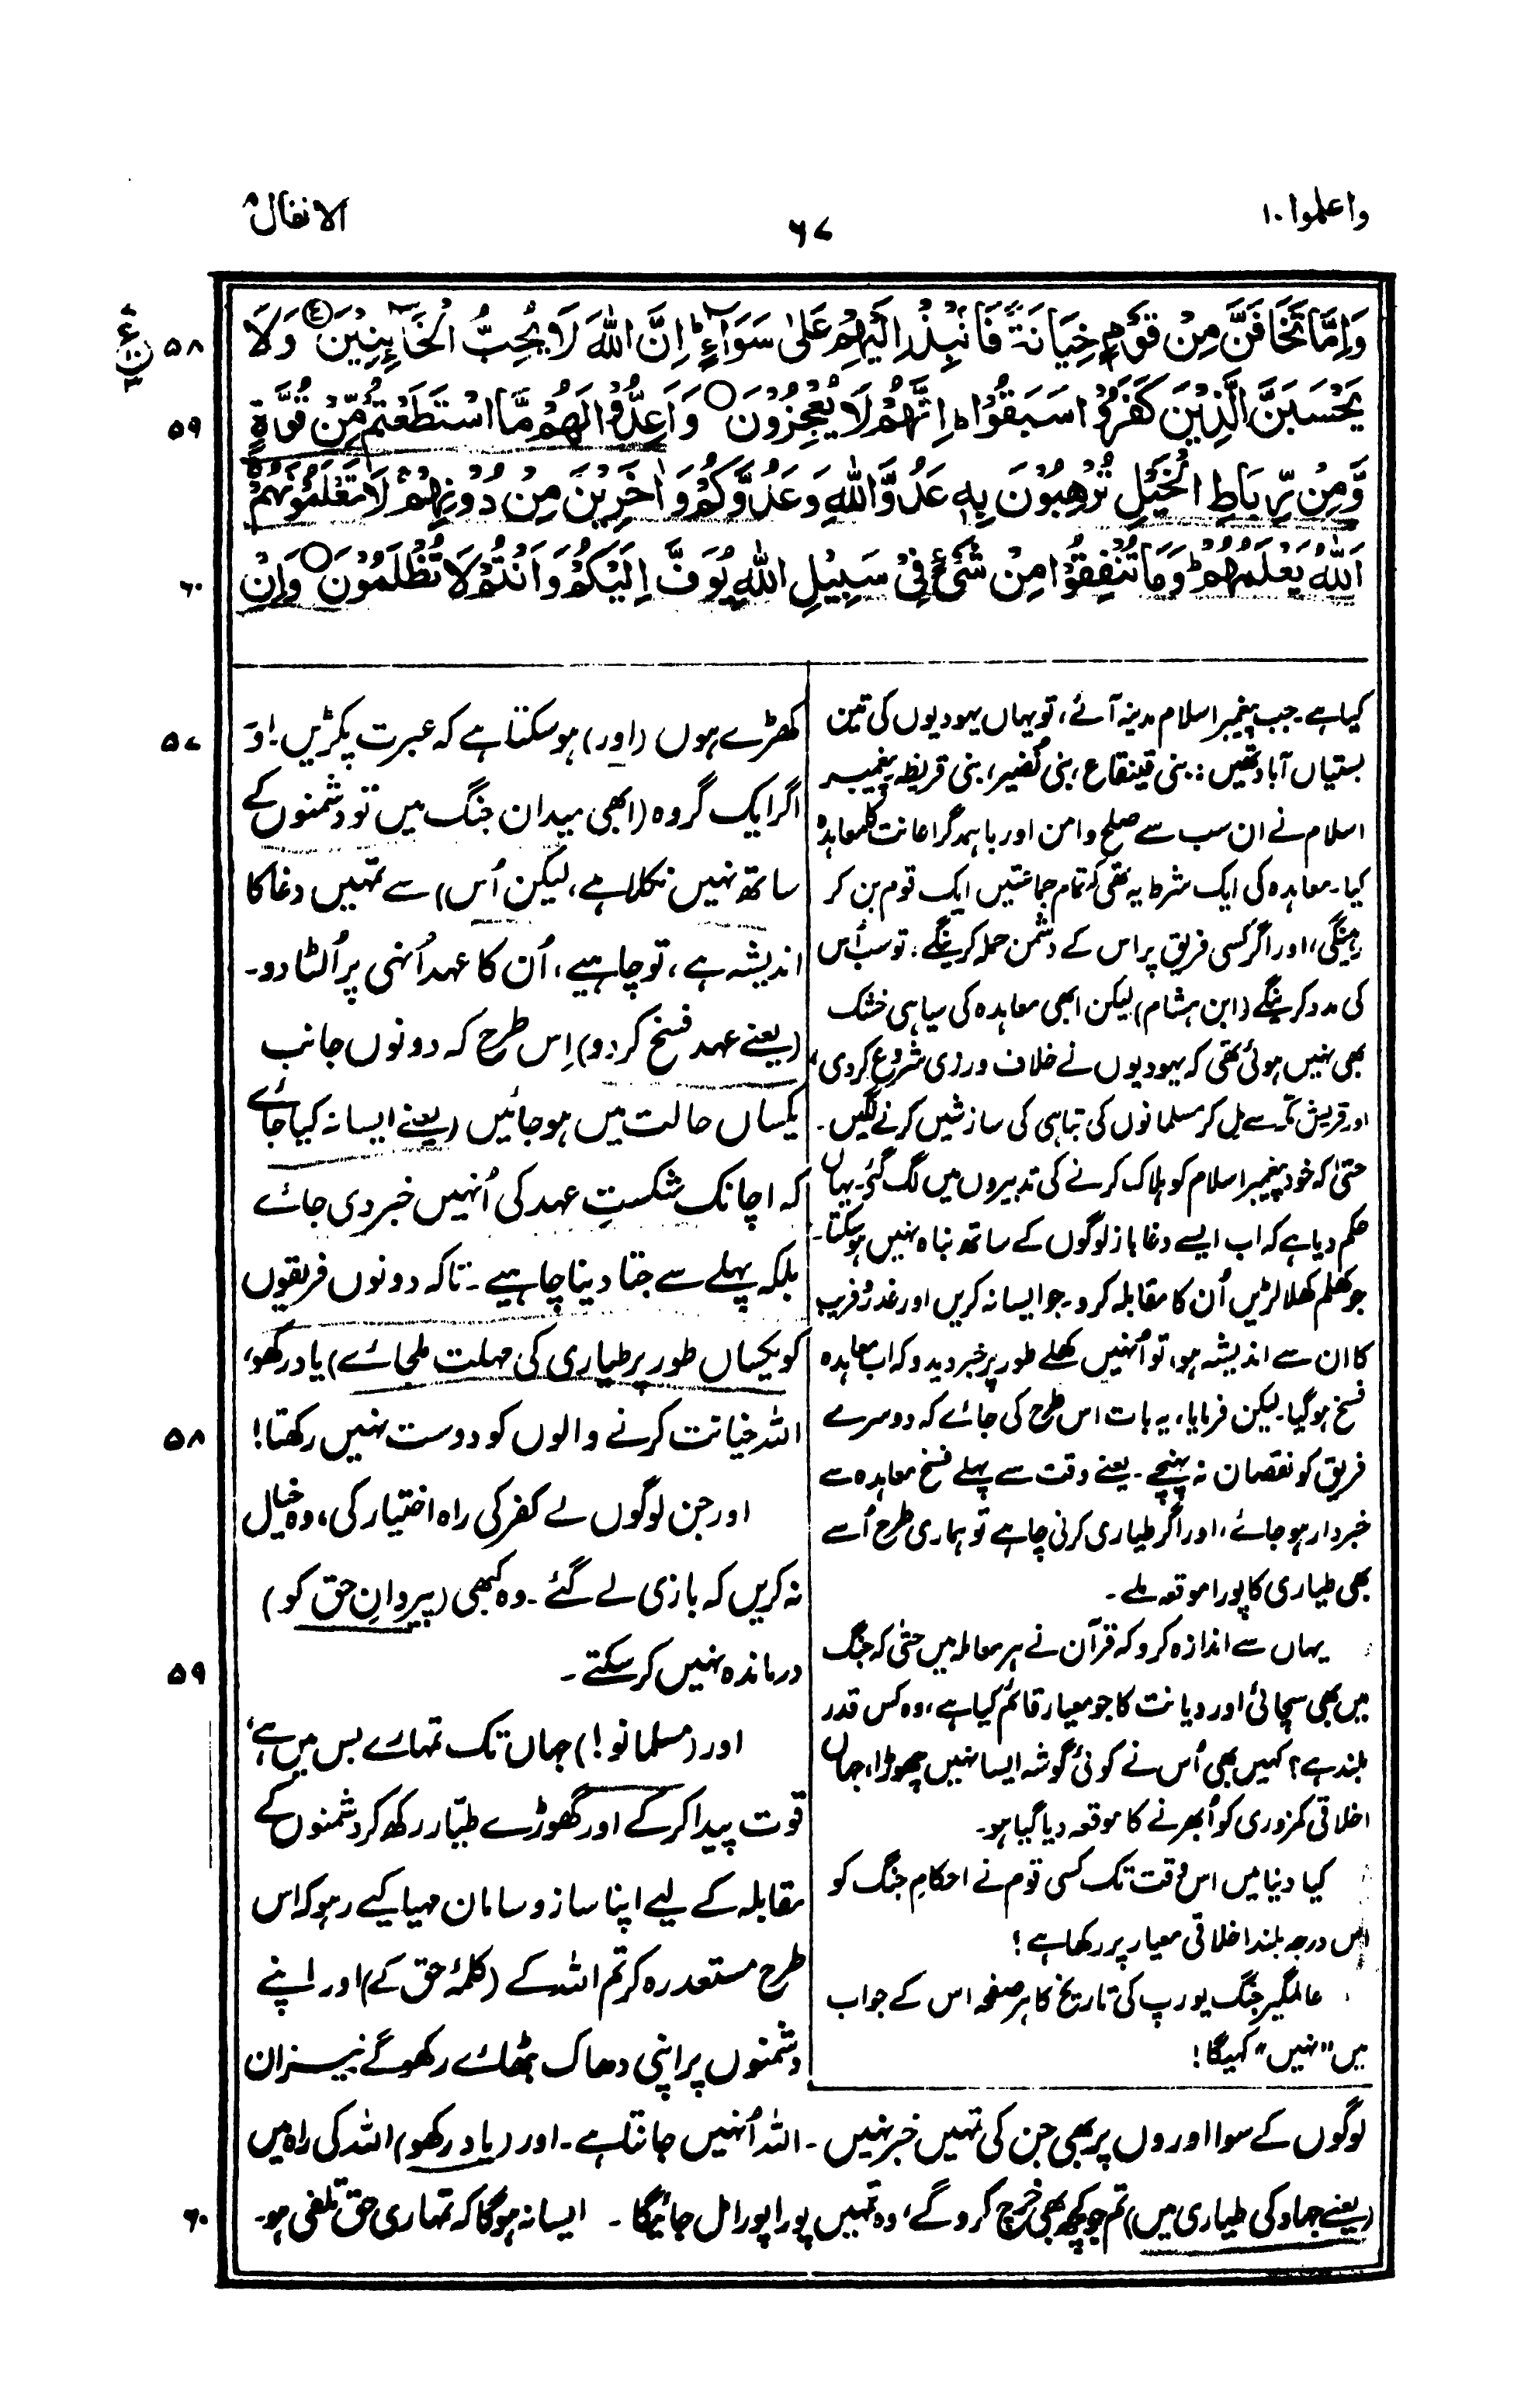 واعلموا ۱۰
۶۷
الانفال ۸
وَاِمَّا تَخَافَنَّ مِنْ قَوْمٍ خِيَانَةً فَانْۢبِذْ اِلَيْهِمْ عَلٰى سَوَآءٍ ؕ اِنَّ اللّٰهَ لَا يُحِبُّ الْخَآئِنِيْنَ ۝ وَلَا
۵۸
يَحْسَبَنَّ الَّذِيْنَ كَفَرُوْا سَبَقُوْا ؕ اِنَّهُمْ لَا يُعْجِزُوْنَ ۝ وَاَعِدُّوْا لَهُمْ مَّا اسْتَطَعْتُمْ مِّنْ قُوَّةٍ
۵۹
وَّمِنْ رِّبَاطِ الْخَيْلِ تُرْهِبُوْنَ بِهٖ عَدُوَّ اللّٰهِ وَعَدُوَّكُمْ وَاٰخَرِيْنَ مِنْ دُوْنِهِمْ ۚ لَا تَعْلَمُوْنَهُمْ ۚ
اَللّٰهُ يَعْلَمُهُمْ ؕ وَمَا تُنْفِقُوْا مِنْ شَيْءٍ فِيْ سَبِيْلِ اللّٰهِ يُوَفَّ اِلَيْكُمْ وَاَنْتُمْ لَا تُظْلَمُوْنَ ۝ وَاِنْ
۶۰
کیا ہے۔ جب پیغمبر اسلام مدینہ آئے، تو یہاں یہودیوں کی تین
بستیاں آباد تھیں: بنی قینقاع، بنی نضیر، بنی قریظہ پیغمبر
اسلام نے ان سب سے صلح و امن اور باہمدگر اعانت کا معاہدہ
کیا۔ معاہدہ کی ایک شرط یہ تھی کہ تمام جماعتیں ایک قوم بن کر
رہینگی، اور اگر کسی فریق پر اس کے دشمن حملہ کرینگے، تو سب اُس
کی مدد کرینگے (ابن ہشام) لیکن ابھی معاہدہ کی سیاہی خشک
بھی نہیں ہوئی تھی کہ یہودیوں نے خلاف ورزی شروع کر دی،
اور قریش مکہ سے مل کر مسلمانوں کی تباہی کی سازشیں کرنے لگیں۔
حتیٰ کہ خود پیغمبر اسلام کو ہلاک کرنے کی تدبیروں میں لگ گئے۔ یہاں
حکم دیا ہے کہ اب ایسے دغا باز لوگوں کے ساتھ نباہ نہیں ہوسکتا۔
جو کھلم کھلا لڑیں اُن کا مقابلہ کرو۔ جو ایسا نہ کریں اور غدر و فریب
کا ان سے اندیشہ ہو، تو اُنہیں کھلے طور پر خبر دیدو کہ اب معاہدہ
فسخ ہوگیا۔ لیکن فرمایا، یہ بات اس طرح کی جائے کہ دوسرے
فریق کو نقصان نہ پہنچے۔ یعنے وقت سے پہلے فسخ معاہدہ سے
خبردار ہو جائے، اور اگر طیاری کرنی چاہے تو ہماری طرح اُسے
بھی طیاری کا پورا موقعہ ملے۔
یہاں سے اندازہ کرو کہ قرآن نے ہر معاملہ میں حتیٰ کہ جنگ
میں بھی سچائی اور دیانت کا جو معیار قائم کیا ہے، وہ کس قدر
بلند ہے؟ کہیں بھی اُس نے کوئی گوشہ ایسا نہیں چھوڑا، جہاں
اخلاقی کمزوری کو اُبھرنے کا موقعہ دیا گیا ہو۔
کیا دنیا میں اس وقت تک کسی قوم نے احکامِ جنگ کو
اس درجہ بلند اخلاقی معیار پر رکھا ہے!
عالمگیر جنگ یورپ کی تاریخ کا ہر صفحہ اس کے جواب
میں "نہیں" کہیگا!
کھڑے ہوں (اور) ہوسکتا ہے کہ عبرت پکڑیں! اور
۵۷
اگر ایک گروہ (ابھی میدان جنگ میں تو دشمنوں کے
ساتھ نہیں نکلا ہے، لیکن اُس) سے تمہیں دغا کا
اندیشہ ہے، تو چاہیے، اُن کا عہد اُنہی پر اُلٹا دو۔
(یعنے عہد فسخ کر دو) اِس طرح کہ دونوں جانب
یکساں حالت میں ہو جائیں (یعنے ایسا نہ کیا جائے
کہ اچانک شکستِ عہد کی اُنہیں خبر دی جائے
بلکہ پہلے سے جتا دینا چاہیے۔ تاکہ دونوں فریقوں
کو یکساں طور پر طیاری کی مہلت ملجائے) یاد رکھو،
اللہ خیانت کرنے والوں کو دوست نہیں رکھتا!
۵۸
اور جن لوگوں نے کفر کی راہ اختیار کی، وہ خیال
نہ کریں کہ بازی لے گئے۔ وہ کبھی (پیروانِ حق کو)
درماندہ نہیں کر سکتے۔
۵۹
اور (مسلمانو!) جہاں تک تمہارے بس میں ہے،
قوت پیدا کر کے اور گھوڑے طیّار رکھ کر دشمنوں کے
مقابلہ کے لیے اپنا ساز و سامان مہیا کیے رہو کہ اس
طرح مستعد رہ کر تم اللہ کے (کلمۂ حق کے) اور اپنے
دشمنوں پر اپنی دھاک بٹھائے رکھو گے نیز ان
لوگوں کے سوا اوروں پر بھی جن کی تمہیں خبر نہیں۔ اللہ اُنہیں جانتا ہے۔ اور (یاد رکھو) اللہ کی راہ میں
(یعنے جہاد کی طیاری میں) تم جو کچھ بھی خرچ کرو گے، وہ تمہیں پورا پورا مل جائیگا۔ ایسا نہ ہوگا کہ تمہاری حق تلفی ہو۔
۶۰